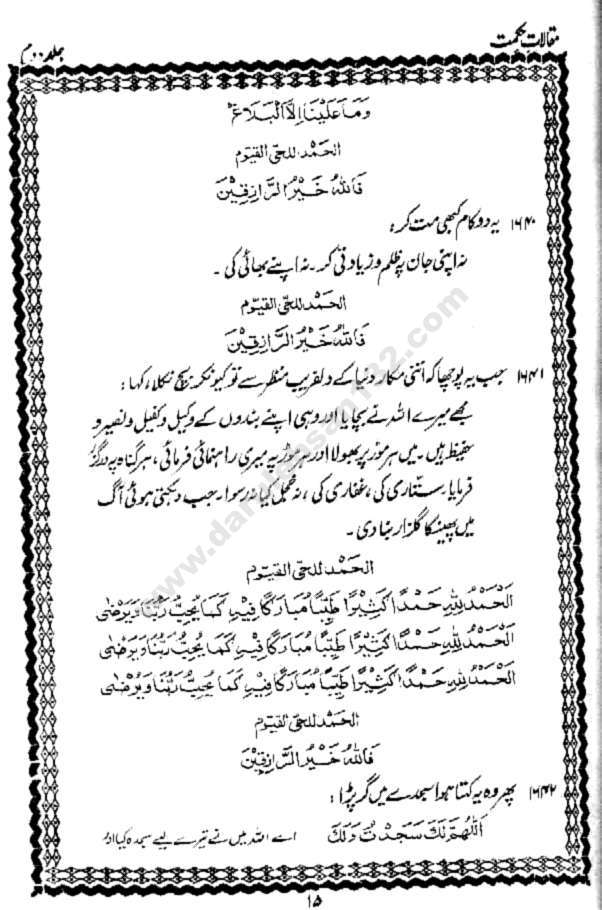 مقالاتِ حکمت
جلد دوم
وَمَا عَلَيْنَا اِلَّا الْبَلَاغُ
الحمد للحی القیوم
فَاللّٰهُ خَيْرُ الرَّازِقِيْنَ
۱۶۴۰ یہ دو کام کبھی مت کر :
نہ اپنی جان پہ ظلم و زیادتی کر۔ نہ اپنے بھائی کی ۔
الحمد للحی القیوم
فَاللّٰهُ خَيْرُ الرَّازِقِيْنَ
۱۶۴۱ جب یہ پوچھا کہ اتنی مکار دنیا کے دلفریب منظر سے تو کیونکر بچ نکلا، کہا :
مجھے میرے اللہ نے بچایا اور وہی اپنے بندوں کے وکیل و کفیل و نصیر و
حفیظ ہیں۔ میں ہر موڑ پر بھولا اور ہر موڑ پہ میری راہنمائی فرمائی ، ہر گناہ پہ درگزر
فرمایا۔ ستّاری کی، غفاری کی ، نہ خجل کیا نہ رسوا۔ جب دہکتی ہوئی آگ
میں پھینکا گلزار بنا دی ۔
الحمد للحی القیوم
اَلْحَمْدُ لِلّٰهِ حَمْدًا كَثِيْرًا طَيِّبًا مُبَارَكًا فِيْهِ كَمَا يُحِبُّ رَبُّنَا وَيَرْضٰى
اَلْحَمْدُ لِلّٰهِ حَمْدًا كَثِيْرًا طَيِّبًا مُبَارَكًا فِيْهِ كَمَا يُحِبُّ رَبُّنَا وَيَرْضٰى
اَلْحَمْدُ لِلّٰهِ حَمْدًا كَثِيْرًا طَيِّبًا مُبَارَكًا فِيْهِ كَمَا يُحِبُّ رَبُّنَا وَيَرْضٰى
الحمد للحی القیوم
فَاللّٰهُ خَيْرُ الرَّازِقِيْنَ
۱۶۴۲ پھر وہ یہ کہتا ہوا سجدے میں گر پڑا :
اَللّٰهُمَّ لَكَ سَجَدْتُ وَلَكَ اے اللہ میں نے تیرے لیے سجدہ کیا اور
۱۵